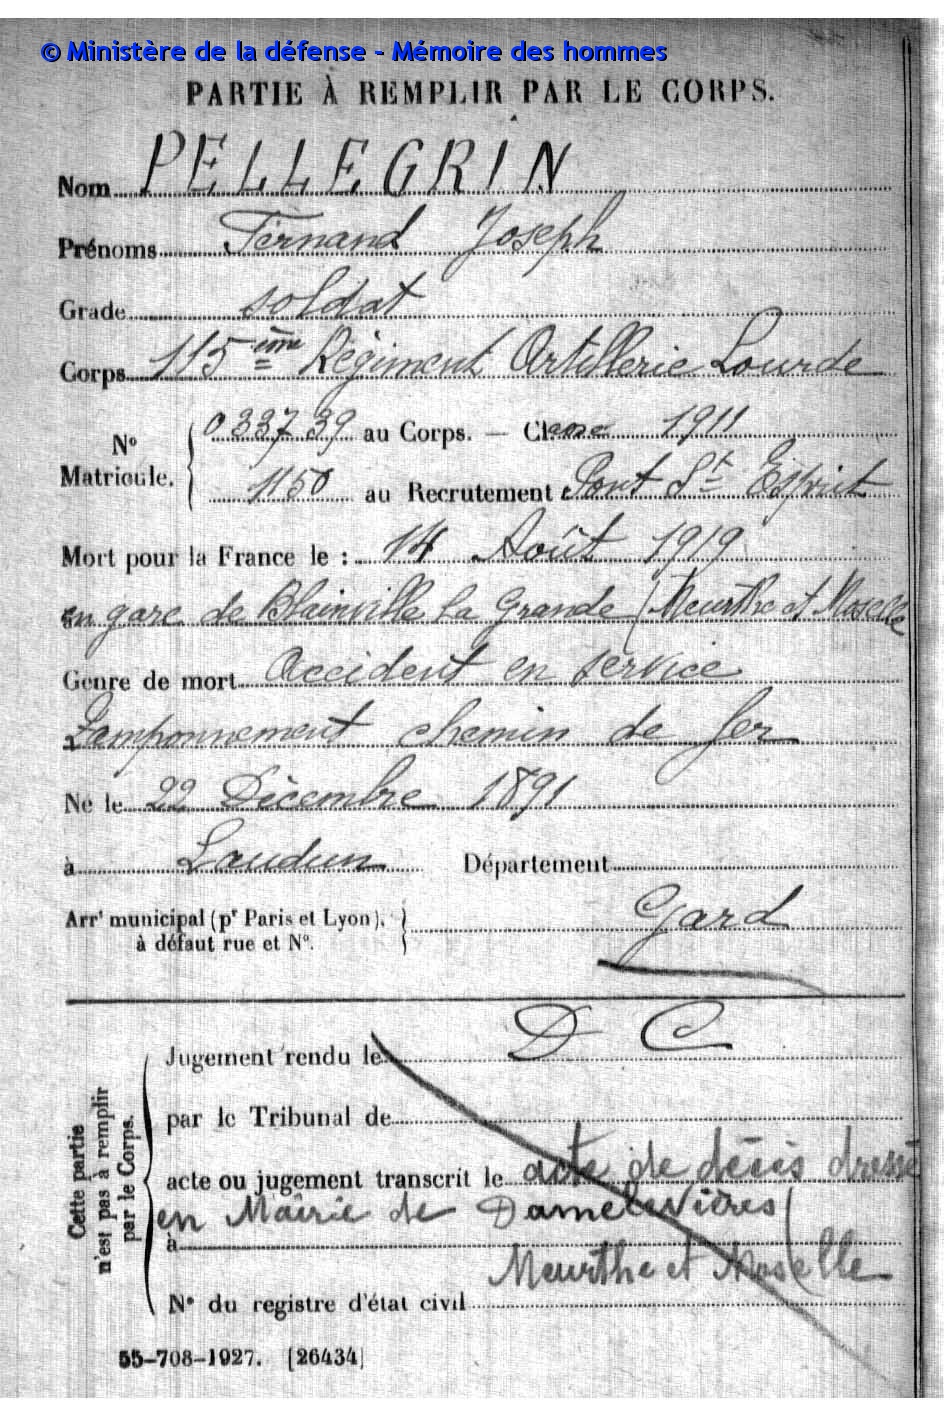 © Ministère de la défense - Mémoire des hommes
PARTIE À REMPLIR PAR LE CORPS.
Nom PELLEGRIN
Prénoms Fernand Joseph
Grade soldat
Corps 115ème Régiment Artillerie Lourde
N° Matricule. 033739 au Corps. — Classe 1911
1150 au Recrutement Pont St Esprit
Mort pour la France le : 14 Août 1919
en gare de Blainville la Grande (Meurthe et Moselle
Genre de mort Accident en service
Tamponnement chemin de fer
Né le 22 Décembre 1891
à Laudun Département
Arrt municipal (pr Paris et Lyon), à défaut rue et N°. Gard
D C
Cette partie n'est pas à remplir par le Corps.
Jugement rendu le
par le Tribunal de
acte ou jugement transcrit le acte de décès dressé
à en Mairie de Damelevières (
Meurthe et Moselle
N° du registre d'état civil
55-708-1927. [26434]